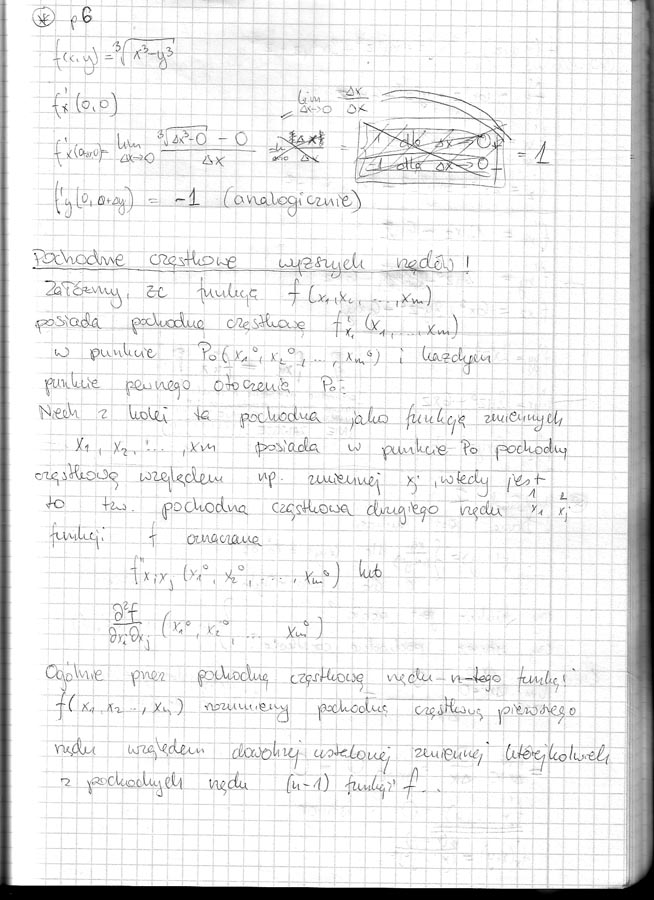 * p6
f(x,y) = ∛(x³-y³)
f'x (0,0)
f'x(0,0) = lim Δx→0 (∛(Δx³-0) - 0)/Δx = = lim Δx→0 Δx/Δx = 1
1 dla Δx→0+
-1 dla Δx→0-
f'y(0, 0+Δy) = -1 (analogicznie)
Pochodne cząstkowe wyższych rzędów!
Załóżmy, że funkcja f(x1,x2,...,xm)
posiada pochodną cząstkową f'xi (x1,...,xm)
w punkcie P0(x1⁰, x2⁰, ..., xm⁰) i każdym
punkcie pewnego otoczenia P0.
Niech z kolei ta pochodna jako funkcja zmiennych
x1, x2, ..., xm posiada w punkcie P0 pochodną
cząstkową względem np. zmiennej xj, wtedy jest
to tzw. pochodna cząstkowa drugiego rzędu
funkcji f oznaczana
f''xixj (x1⁰, x2⁰, ..., xm⁰) lub
∂²f/∂xi∂xj (x1⁰, x2⁰, ... xm⁰)
Ogólnie przez pochodną cząstkową rzędu n-tego funkcji
f(x1, x2 .., xn) rozumiemy pochodną cząstkową pierwszego
rzędu względem dowolnej ustalonej zmiennej którejkolwiek
z pochodnych rzędu (n-1) funkcji f...